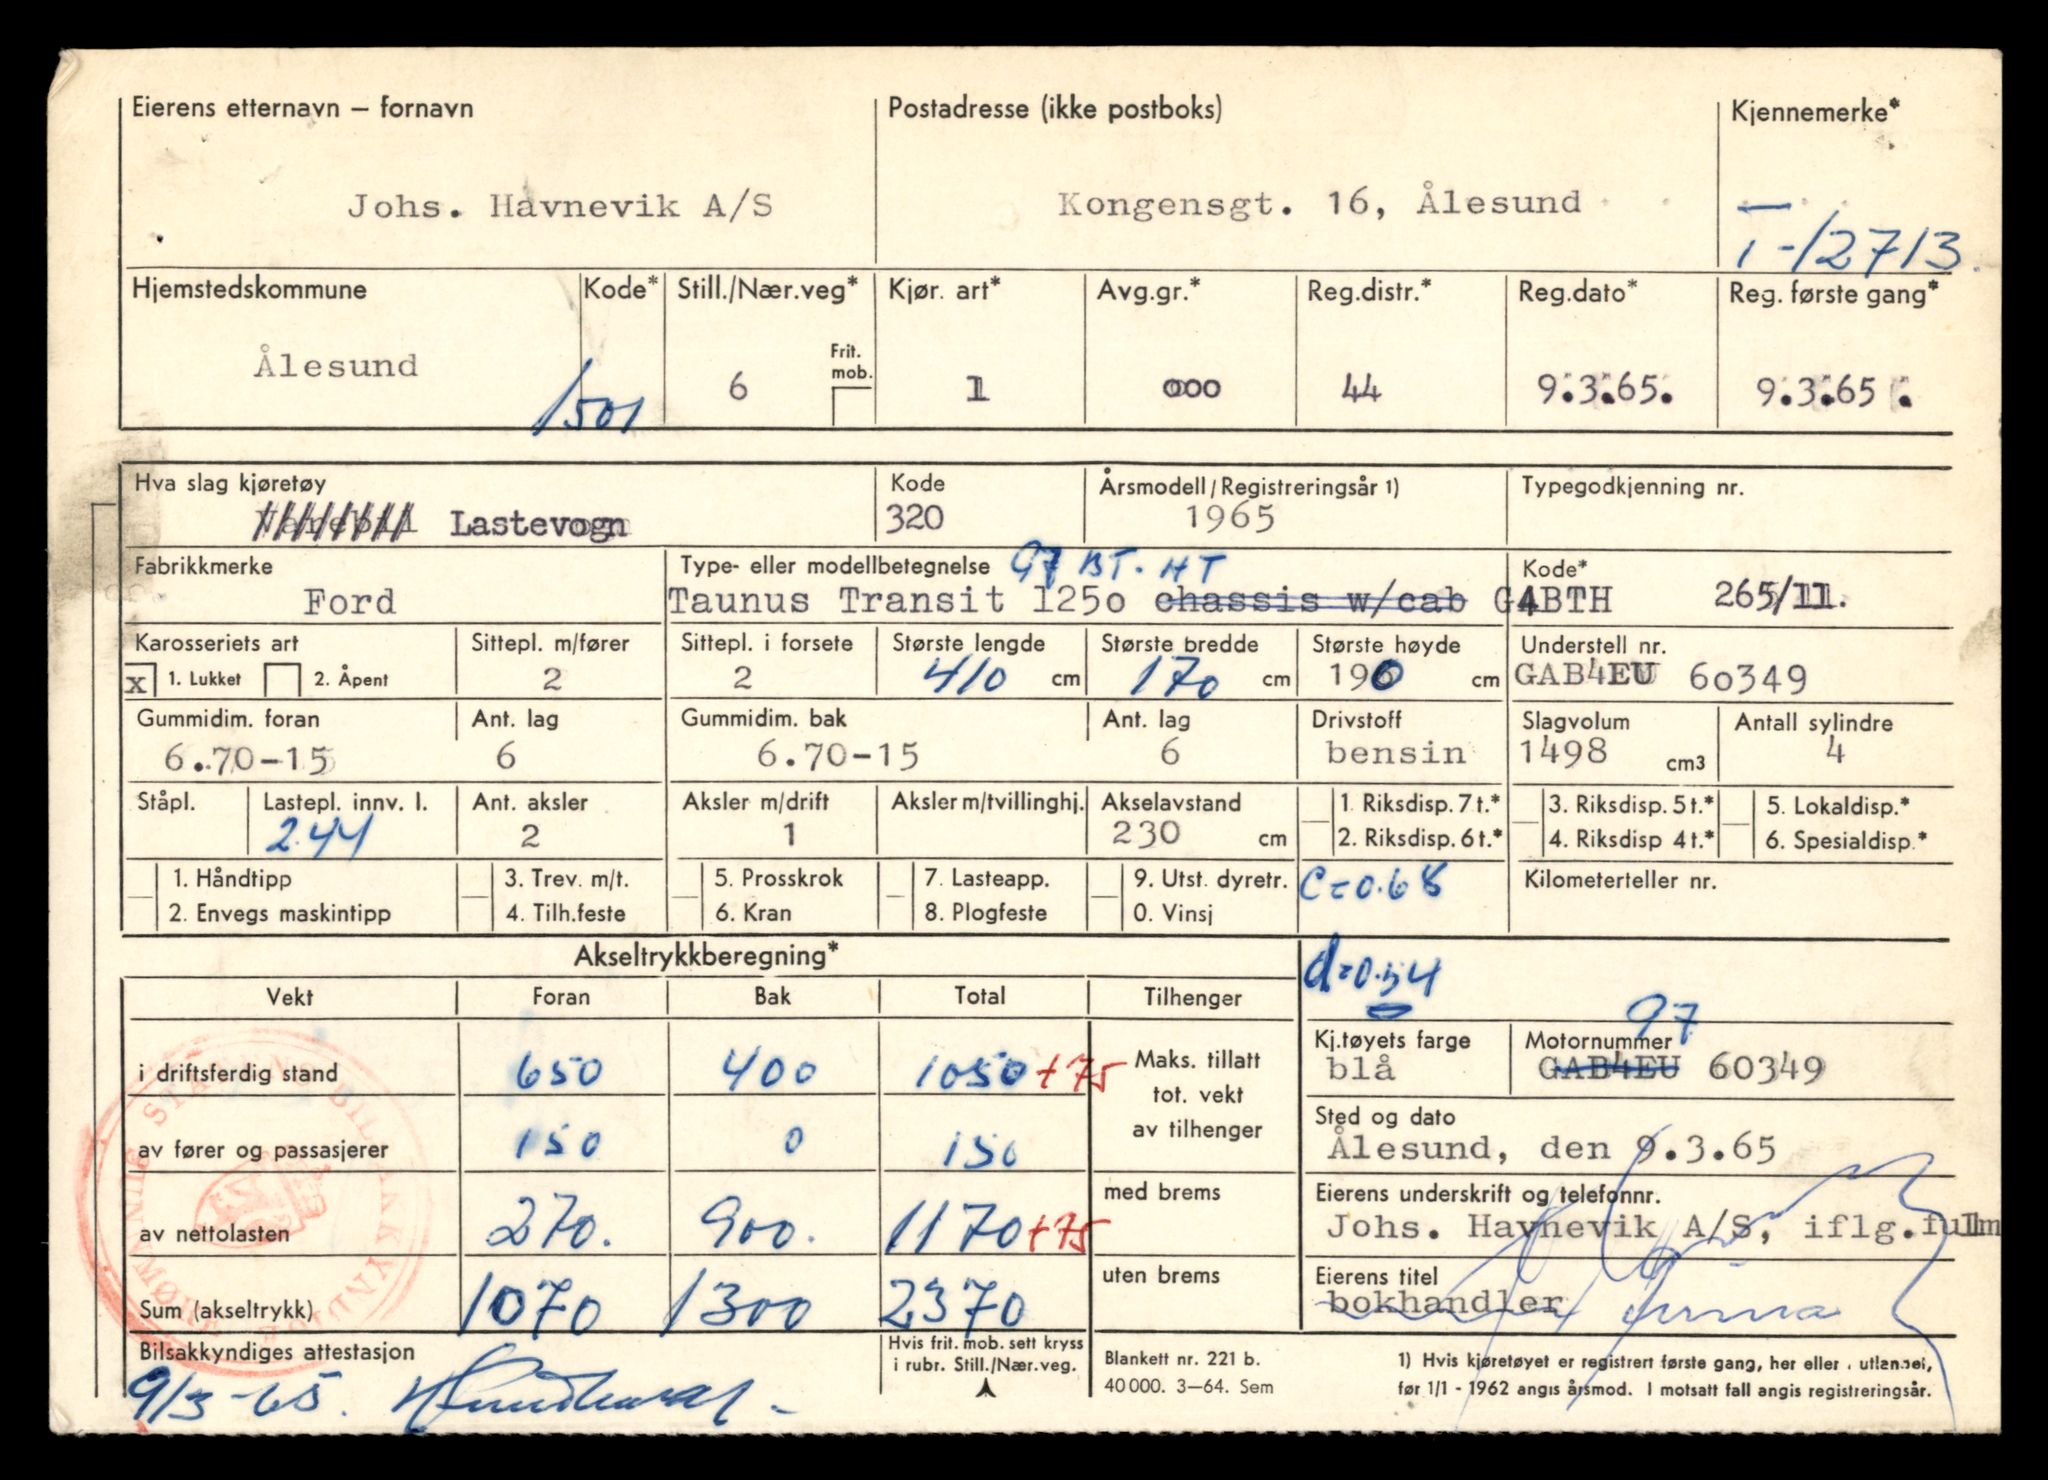 Eierens etternavn – fornavn Postadresse (ikke postboks) Kjennemerke*
Johs. Havnevik A/S Kongensgt. 16, Ålesund T-12713
Hjemstedskommune Kode* Still./Nær.veg* Kjør. art* Avg.gr.* Reg.distr.* Reg.dato* Reg. første gang*
Frit. mob.
Ålesund 1501 6 1 000 44 9.3.65. 9.3.65.
Hva slag kjøretøy Kode Årsmodell/Registreringsår 1) Typegodkjenning nr.
Varebil Lastevogn 320 1965
Fabrikkmerke Type- eller modellbetegnelse 97 BT. HT Kode*
Ford Taunus Transit 1250 chassis w/cab G4BTH 265/11.
Karosseriets art Sittepl. m/fører Sittepl. i forsete Største lengde Største bredde Største høyde Understell nr.
x 1. Lukket 2. Åpent 2 2 410 cm 170 cm 190 cm GAB4EU 60349
Gummidim. foran Ant. lag Gummidim. bak Ant. lag Drivstoff Slagvolum Antall sylindre
6.70-15 6 6.70-15 6 bensin 1498 cm3 4
Ståpl. Lastepl. innv. l. Ant. aksler Aksler m/drift Aksler m/tvillinghj. Akselavstand 1. Riksdisp. 7 t.* 3. Riksdisp. 5 t.* 5. Lokaldisp.*
244 2 1 230 cm 2. Riksdisp. 6 t.* 4. Riksdisp 4 t.* 6. Spesialdisp.*
1. Håndtipp 3. Trev. m/t. 5. Prosskrok 7. Lasteapp. 9. Utst. dyretr. C=0.68 Kilometerteller nr.
2. Envegs maskintipp 4. Tilh.feste 6. Kran 8. Plogfeste 0. Vinsj
Akseltrykkberegning* d=0.54
Vekt Foran Bak Total Tilhenger
97
Kj.tøyets farge Motornummer
i driftsferdig stand 650 400 1050 +75 Maks. tillatt tot. vekt av tilhenger blå GAB4EU 60349
Sted og dato
av fører og passasjerer 150 0 150 Ålesund, den 9.3.65
med brems Eierens underskrift og telefonnr.
av nettolasten 270. 900. 1170 +75 Johs. Havnevik A/S, iflg.fullm
uten brems Eierens titel
Sum (akseltrykk) 1070 1300 2370 bokhandler firma
Bilsakkyndiges attestasjon Hvis frit. mob. sett kryss i rubr. Still./Nær.veg. Blankett nr. 221 b. 1) Hvis kjøretøyet er registrert første gang, her eller i utlandet,
9/3-65. 40 000. 3–64. Sem før 1/1 - 1962 angis årsmod. I motsatt fall angis registreringsår.